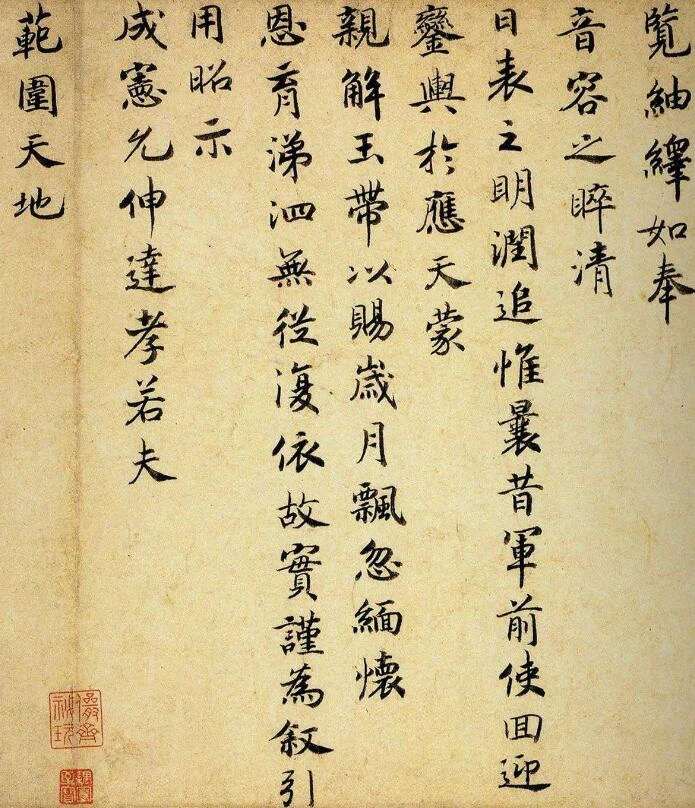 覧紬繹如奉
音容之睟清
日表之明潤追惟曩昔軍前使回迎
鑾輿於應天蒙
親解玉帶以賜歲月飄忽緬懷
恩育涕泗無從復依故實謹為叙引
用昭示
成憲允伸達孝若夫
範圍天地
儼齋秘玩